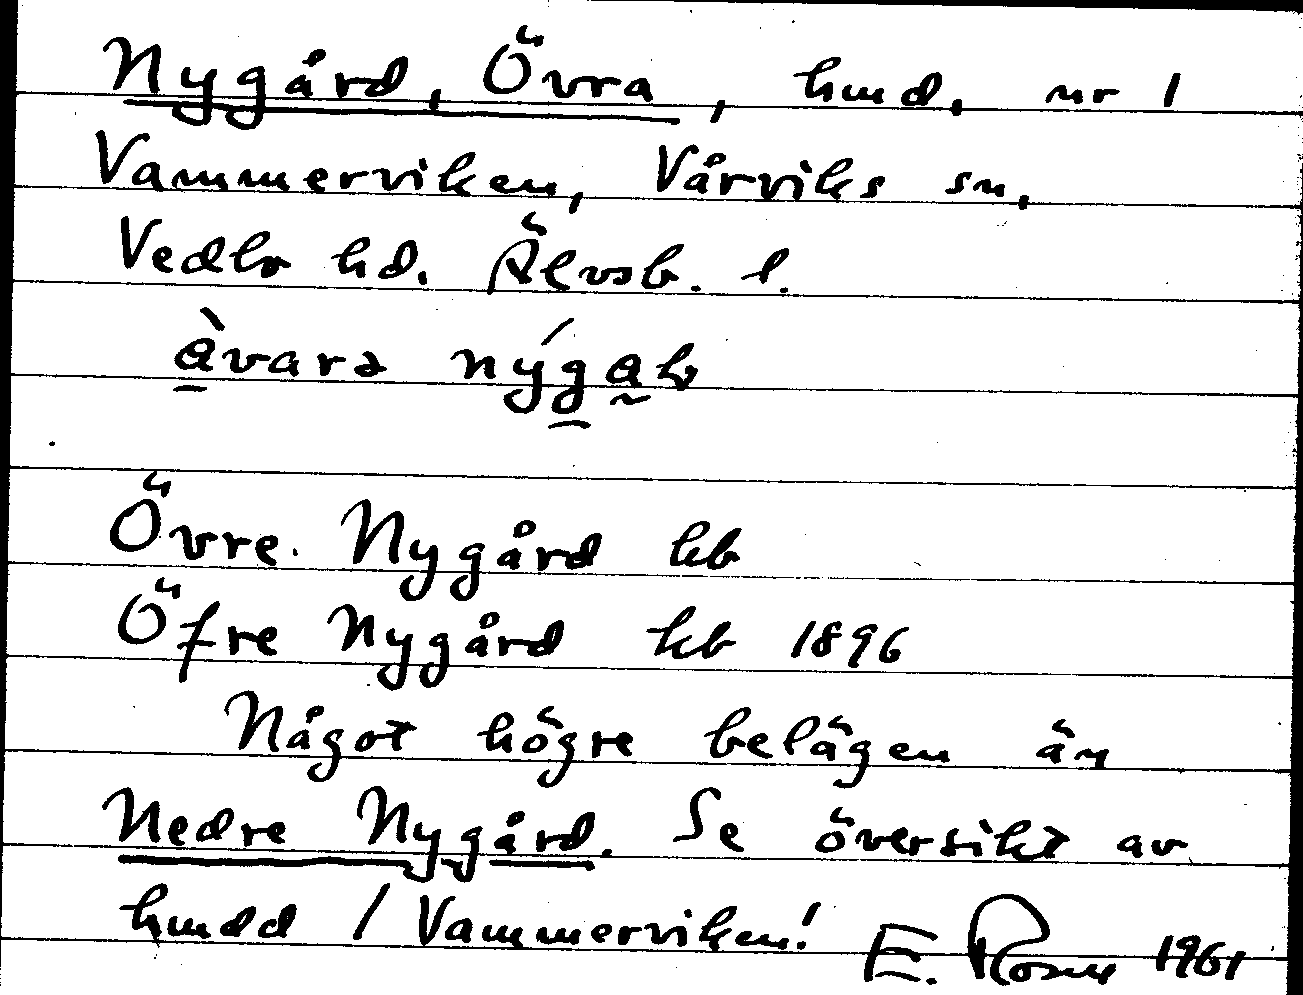 Nygård, Övra, hmd, nr 1
Vammerviken, Vårviks sn,
Vedbo hd. Älvsb. l.
Övre Nygård kb
Öfre Nygård kb 1896
Något högre belägen än
Nedre Nygård. Se översikt av
hmdd / Vammerviken!
E. Rosny 1961